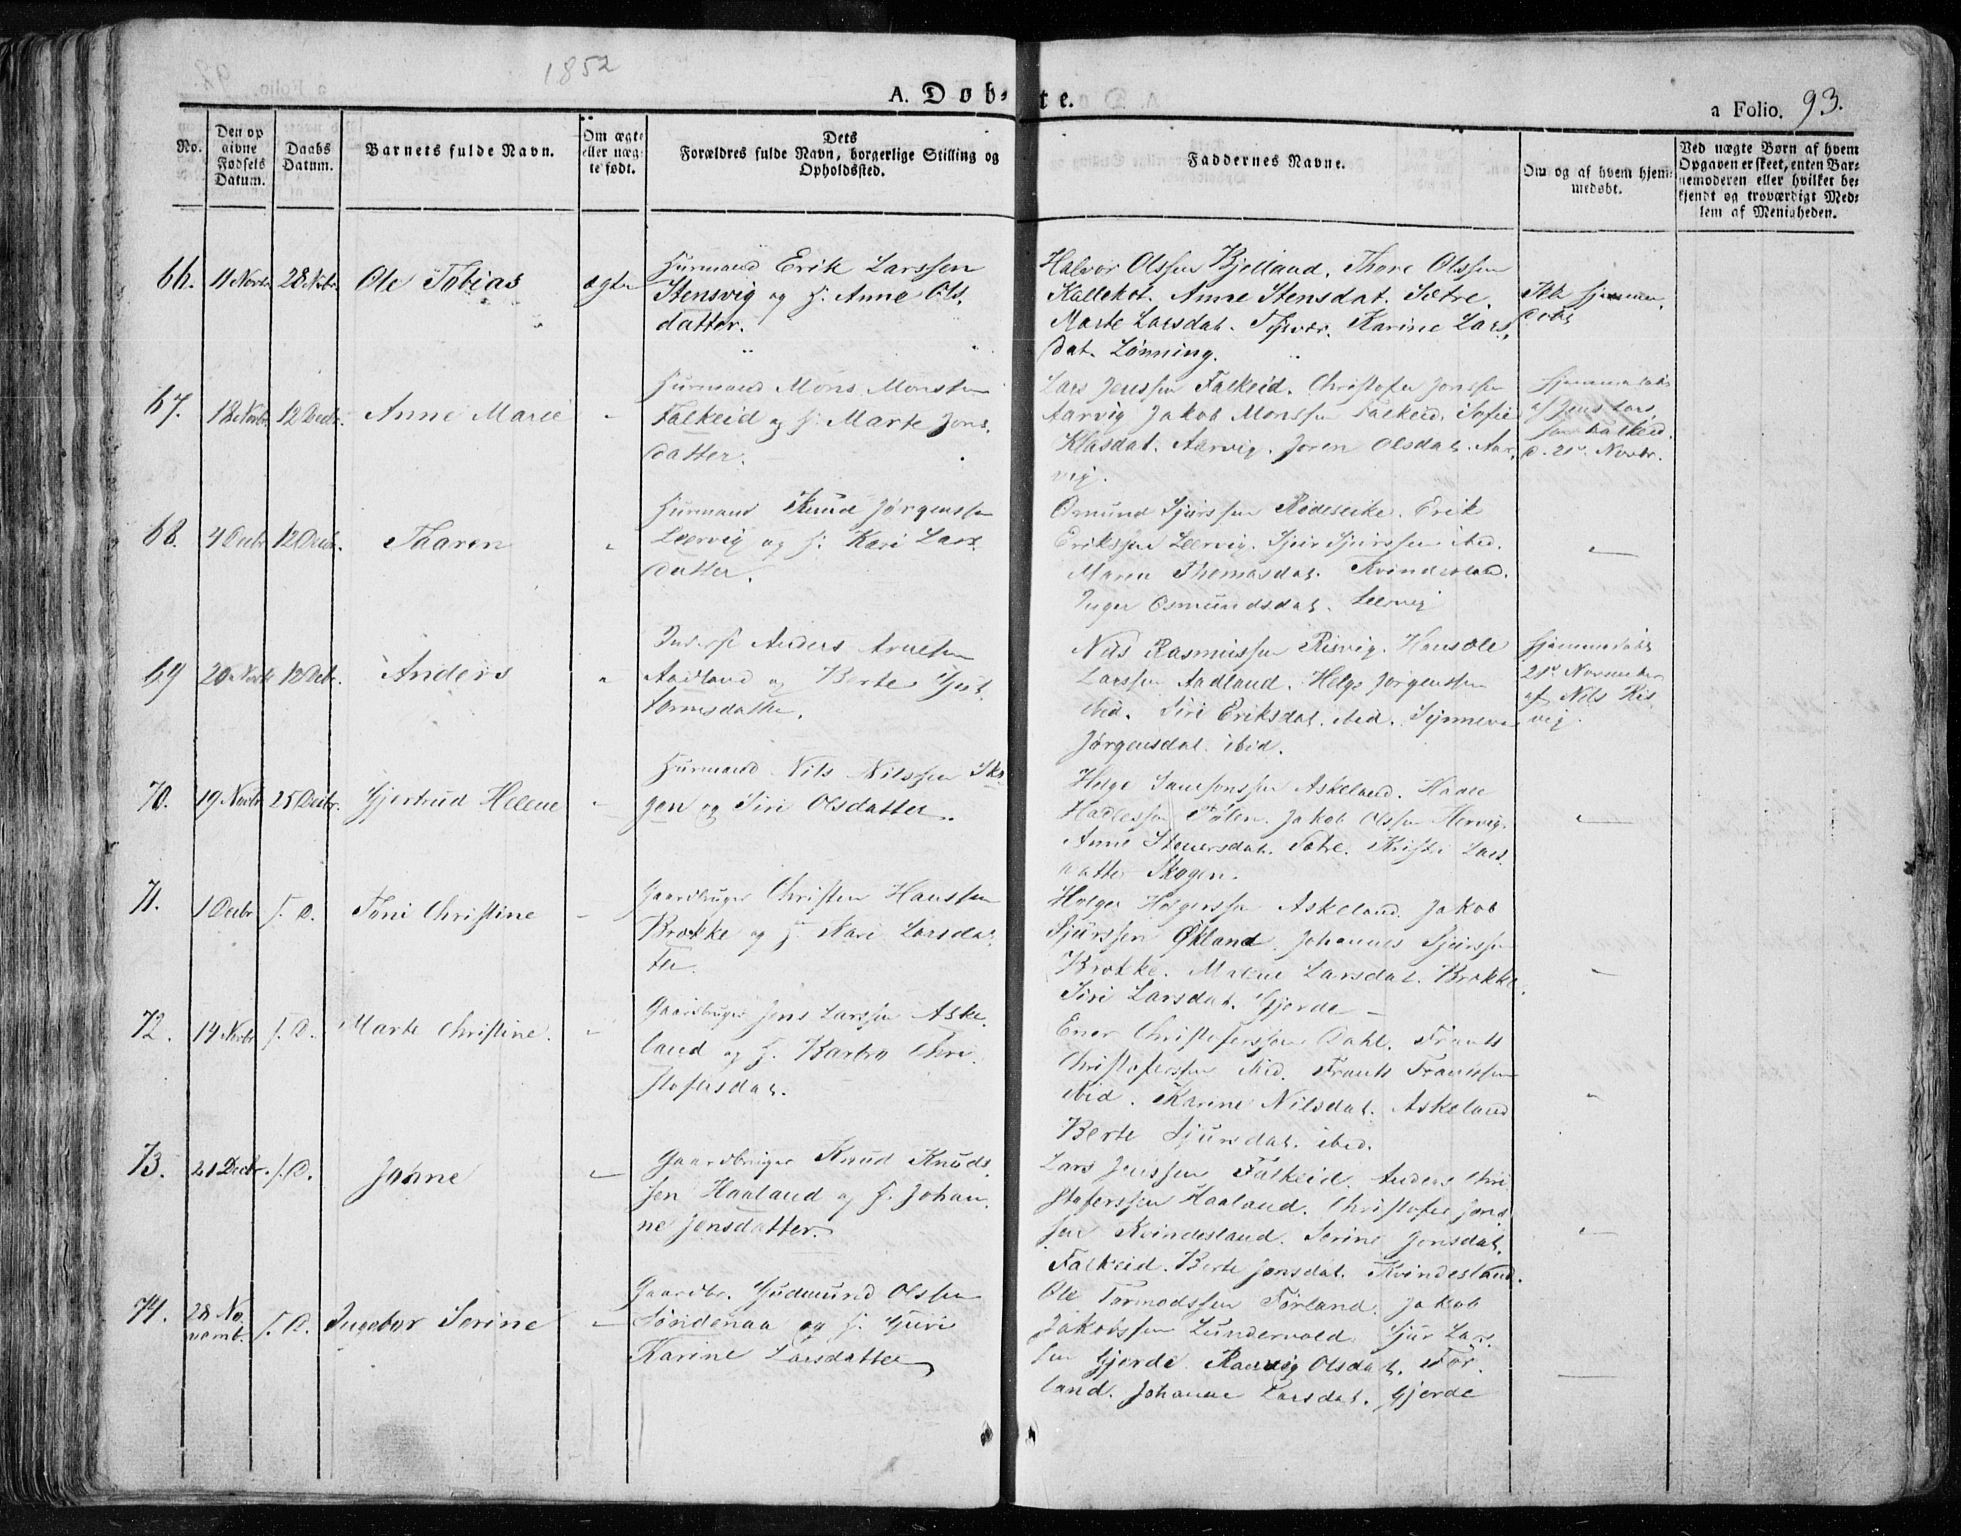 1852
A. Døb-te.
a Folio. 93.
No.
Den op
givne
Fødsels
Datum.
Daabs
Datum.
Barnets fulde Navn.
Om ægte
eller uæg-
te født.
Dets
Forældres fulde Navn, borgerlige Stilling og
Opholdssted.
Faddernes Navne.
Om og af hvem hjem-
medøbt.
Ved uægte Børn af hvem
Opgaven er skeet, enten Bar-
nemoderen eller hvilket be-
kjendt og troværdigt Med-
lem af Menigheden.
66. 11 Novbr 28 Novbr. Ole Tobias ægte
Huusmand Erik Larssen
Stensvig og H. Anne Ols-
datter.
Halvor Olssen Kjelland. Thore Olssen
Kallekot. Anne Stensdat. Sætre.
Marte Larsdat. Tysvær. Karine Lars-
dat. Lønning.
Ikke hjemme
døbt
67. 18 Novbr. 12 Decbr. Anne Marie "
Huusmand Mons Monssen
Falkeid og H. Marte Jons-
datter.
Lars Jenssen Falkeid. Christofer Jonssen
Aarvig Jakob Monssen Falkeid. Sofie
Klasdat. Aarvig. Joren Olsdat. Aar-
vig.
Hjemmedøbt
af Jens Lars
sen Falkeid.
d. 21. Novbr.
68. 4 Decbr 12 Decbr. Thaaren "
Huusmand Knud Jørgenssen
Leervig og H. Kari Lars-
datter.
Osmund Sjurssen Rødeseike. Erik
Erikssen Leervig. Sjur Sjurssen ibid.
Maren Thomasdat. Kvindesland.
Inger Osmundsdat. Leervig
69 20 Novbr 12 Decbr. Anders "
Inderst Anders Arnesen
Aadland og Berte Gut-
tormsdatter.
Nils Rasmussen Risvig. Hans Ole
Larssen Aadland. Helge Jørgenssen
ibid. Siri Eriksdat. ibid. Synneva
Jørgensdat. ibid.
Hjemmedøbt
21d November
af Nils Ris-
vig.
70. 19 Novbr 25 Decbr. Gjertrud Helene "
Huusmand Nils Nilssen Sko-
gen og Siri Olsdatter.
Helge Samsonssen Askeland. Haade
Hadlessen Jakob Olssen Hervig.
Anne Sjursdat. Sætre. Kristi Lars
datter Skogen.
71. 1 Decbr s. D. Toni Christine "
Gaardbruger Christen Hanssen
Brokke og H. Kari Larsdat-
ter.
Holger Holgerssen Askeland. Jakob
Sjurssen Økland. Johannes Sjurssen
Brokke. Malene Larsdat. Brokke.
Siri Larsdat. Gjerde
72. 14 Novbr s. D. Marte Christine. "
Gaardbruger Jens Larssen Aske-
land og H. Barbro Chri-
stofersdat.
Ener Christoferssen Dahl. Frants
Christoferssen ibid. Frants Frantssen
ibid. Karine Nilsdat. Askeland
Berte Sjursdat. ibid.
73. 21 Decbr. s. D. Johne
Gaardbruger Knud Knuds-
sen Haaland og H. Johan-
ne Jensdatter.
Lars Jenssen Falkeid. Anders Chri
stoferssen Haaland. Christofer Jons-
sen Kvindesland. Serine Jonsdat.
Falkeid. Berte Jonsdat. Kvindesland.
74. 28 No-
vemb. s. D. Ingebor Serine
Gaardbr. Gudmund Olssen
Søndenaa og H. Guri
Karine Larsdatter
Ole Tormodssen Førland. Jakob
Jakobssen Lundervold. Sjur Lars-
sen Gjerde. Olsdat. Før-
land. Johanne Larsdat. Gjerde